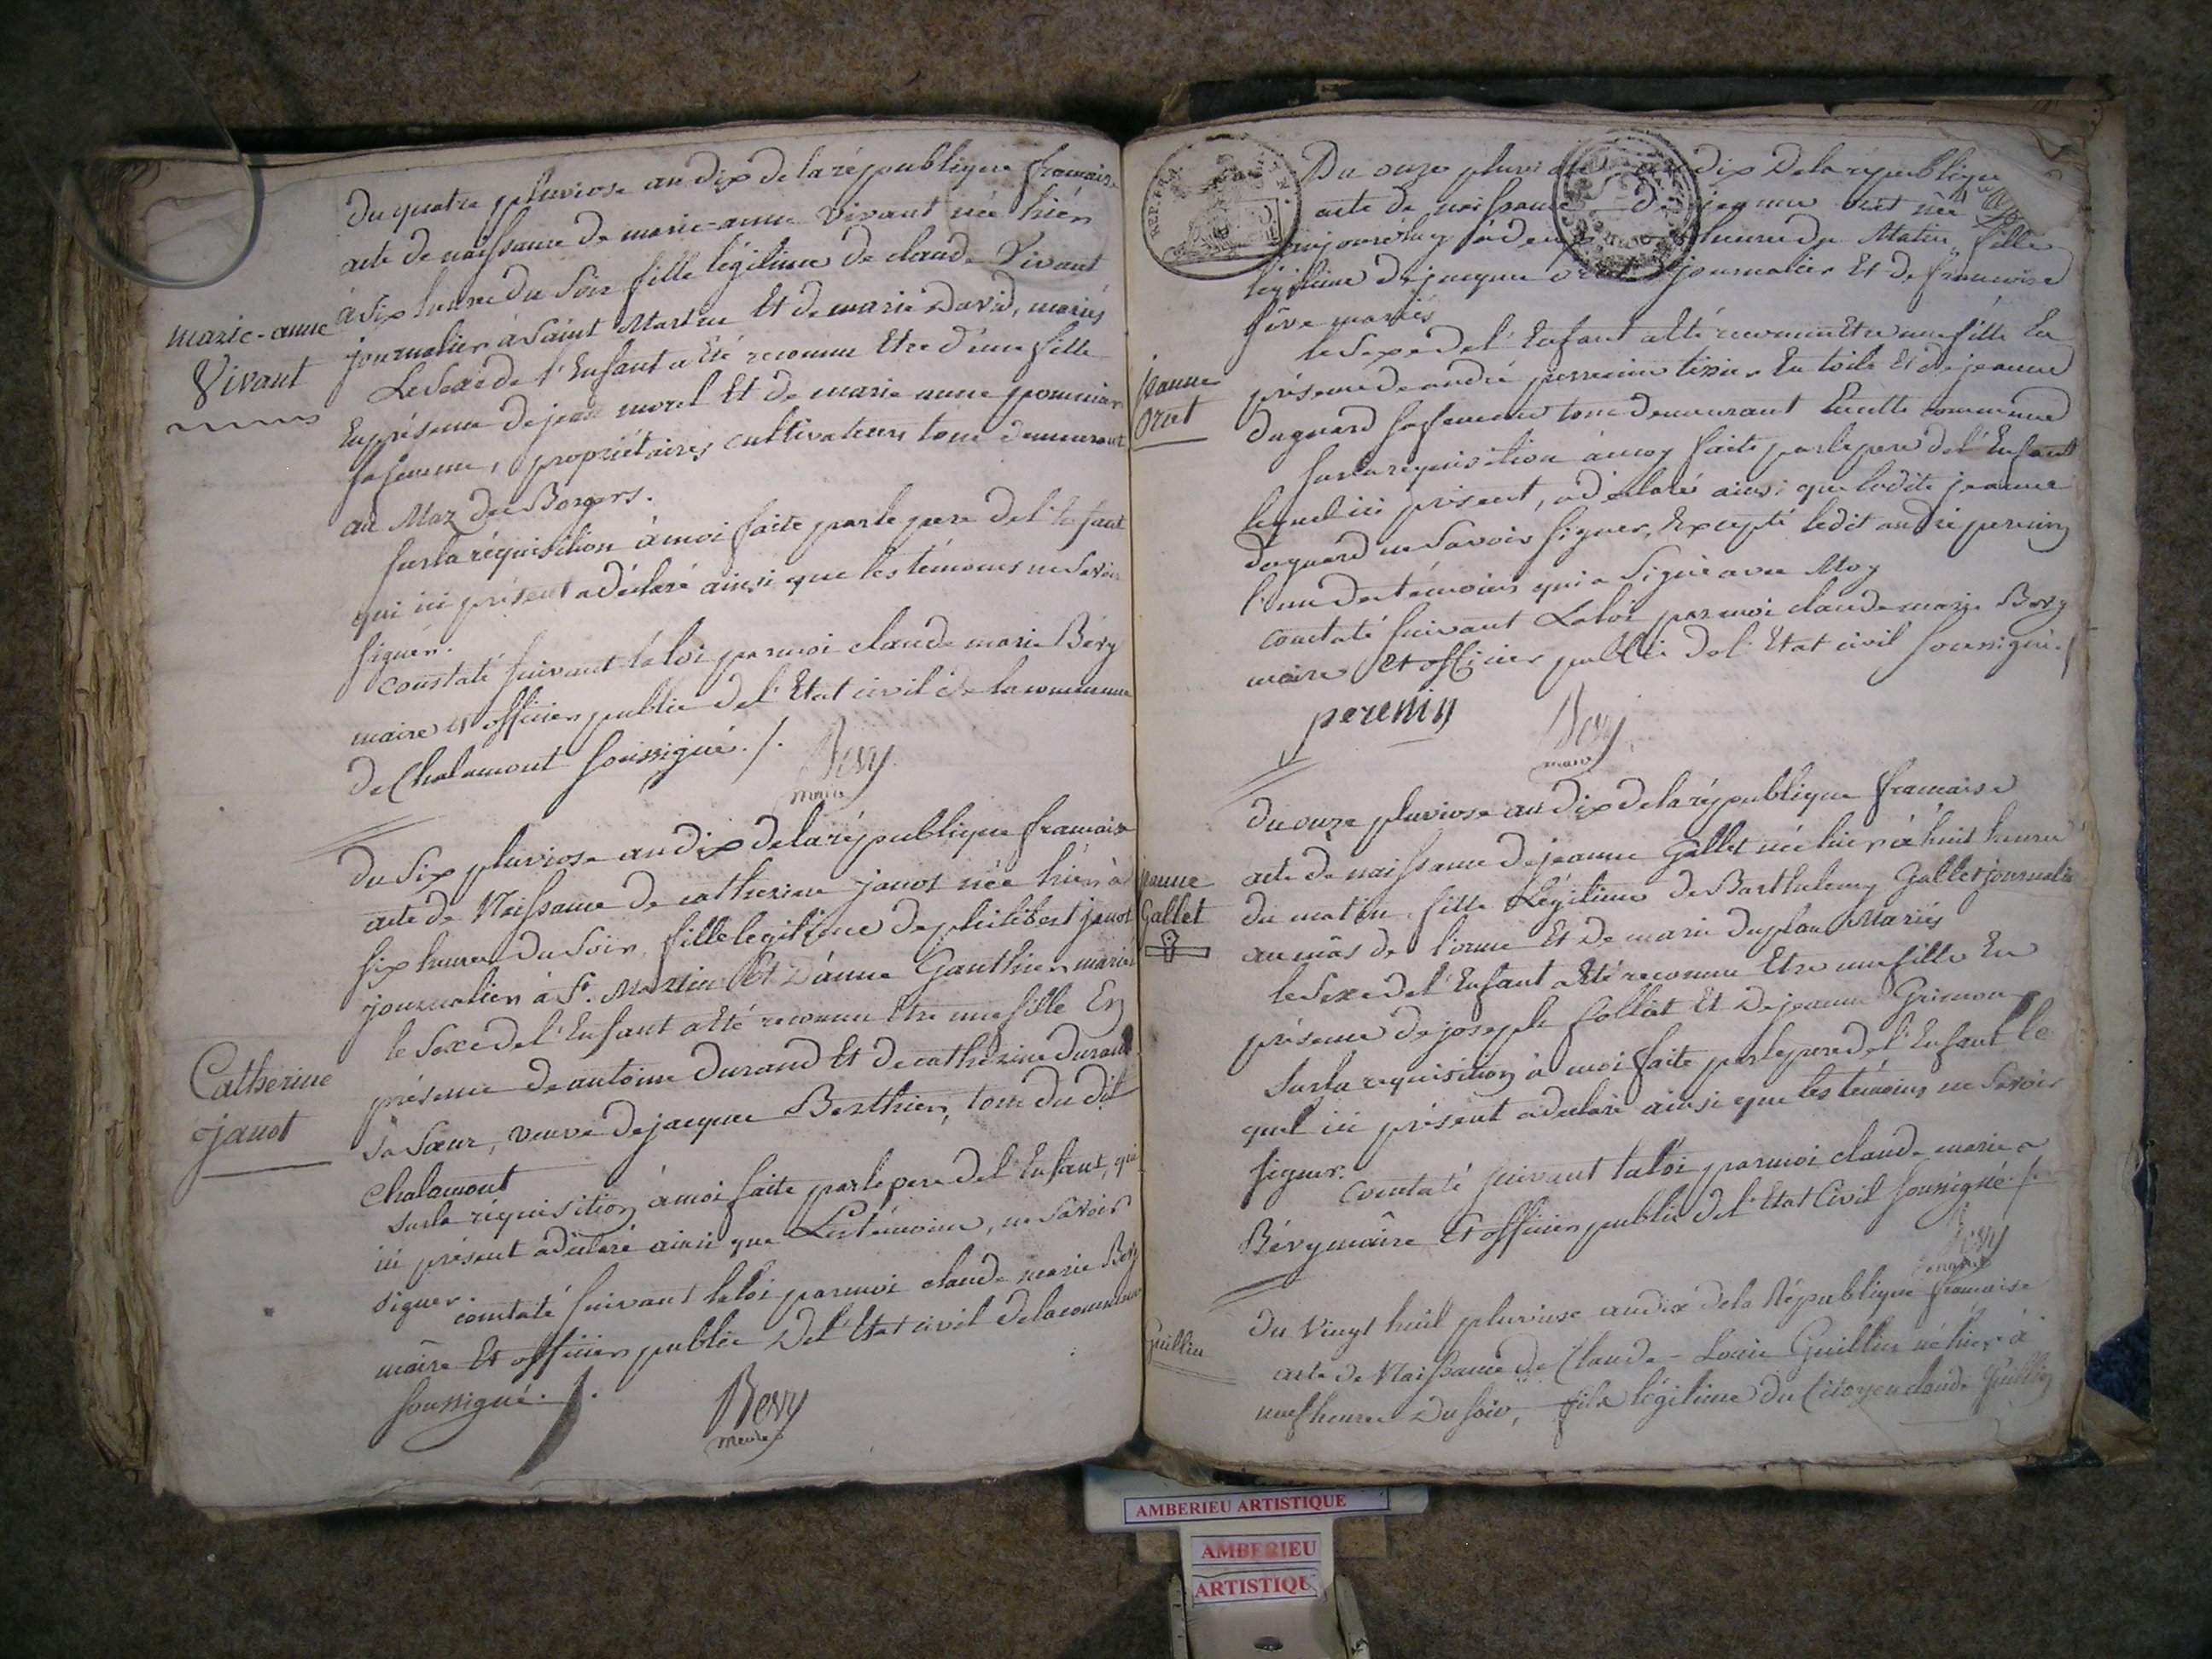 du quatre pluviose an dix de la république francaise
acte de naissance de marie-anne Vivant née hier
à six heure du soir fille légitime de claude Vivant
journalier à saint Martin Et de marie David, mariés
marie-anne
Vivant
Le Sexe de l'Enfant a Eté reconnu Etre d'une fille
En présence de jean morel Et de marie anne
sa femme, propriétaires cultivateurs tous demeurant
au Maz des Borgers.
sur la réquisition à moi faite par le pere de l'Enfant
qui ici présent a déclaré ainsi que les témoins ne savoir
signer.
constaté suivant la loi par moi claude marie Bévy
maire et officier public de l'Etat civil de la commune
de Chalamont soussigné ./.
Bevy
maire
du six pluviose an dix de la république francaise
acte de Naissance de catherine janot née hier à
six heures du soir, fille legitime de philibert janot
journalier à St. Martin Et d'anne Gauthier mariés
le Sexe de l'Enfant a Eté reconnu Etre une fille En
présence de antoine durand Et de catherine durand
Catherine
janot
sa sœur, veuve de jacque Berthier, tous du dit
Chalamont
sur la réquisition à moi faite par le pere de l'Enfant, qui
ici présent a déclaré ainsi que Les témoins, ne savoir
signer.
constaté suivant la loi par moi claude marie Bevy
maire Et officier public de l'Etat civil de la commune
soussigné ./.
Bevy
maire
REP. FRA
Du onze pluviose an dix de la république
acte de naissance de jeanne oret née
aujourd'huy à deux heure du Matin, fille
légitime de jacque oret journalier Et de francoise
fêve mariés
le Sexe de l'Enfant a Eté reconnu Etre une fille En
jeanne
oret
présence de andré perrenin tissier En toile Et de jeanne
duguerd sa femme tous demeurant En cette commune
sur la requisition à moy faite par le pere de l'Enfant
lequel ici présent, a déclaré ainsi que ladite jeanne
duguerd ne savoir signer, Excepté ledit andré perenin
l'un des témoins qui a signé avec Moy
constaté suivant La loi par moi claude marie Bevy
maire et officier public de l'Etat civil soussigné ./
perenin
Bevy
maire
du onze pluviose an dix de la république francaise
acte de naissance de jeanne Gallet née hier à huit heures
jeanne
Gallet
du matin, fille Légitime de Barthelemy Gallet journalier
au mâs de l'orme Et de marie duplan Mariés
le Sexe de l'Enfant a Eté reconnu Etre une fille En
présence de joseph follet Et De jeanne Grimon
sur la requisition à moi faite par le pere de l'Enfant le
quel ici présent a déclaré ainsi que les témoins ne savoir
signer.
constaté suivant la loi par moi claude marie
Bévy maire Et officier public de l'Etat Civil soussigné ./.
Bevy
maire
du Vingt huit pluviose an dix de la République francaise
Guillin
acte de Naissance de Claude-Louis Guillin né hier à
neuf heures du soir, fils légitime du Citoyen claude Guillin
AMBERIEU ARTISTIQUE
AMBERIEU
ARTISTIQUE